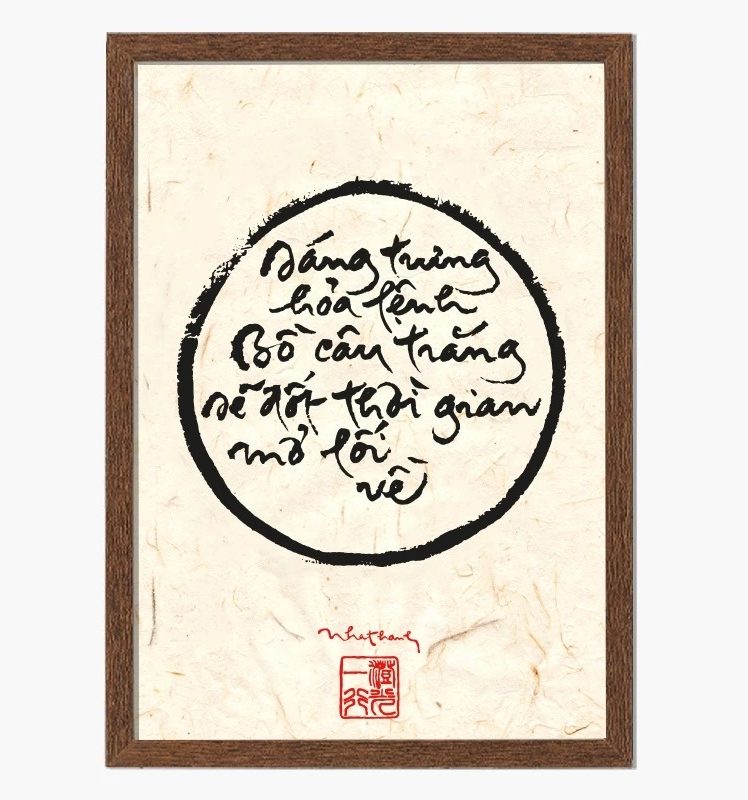 Sáng trưng
hỏa lệnh
Bồ câu trắng
sẽ đốt thời gian
mở lối
về
nhathanh
澄光
一行